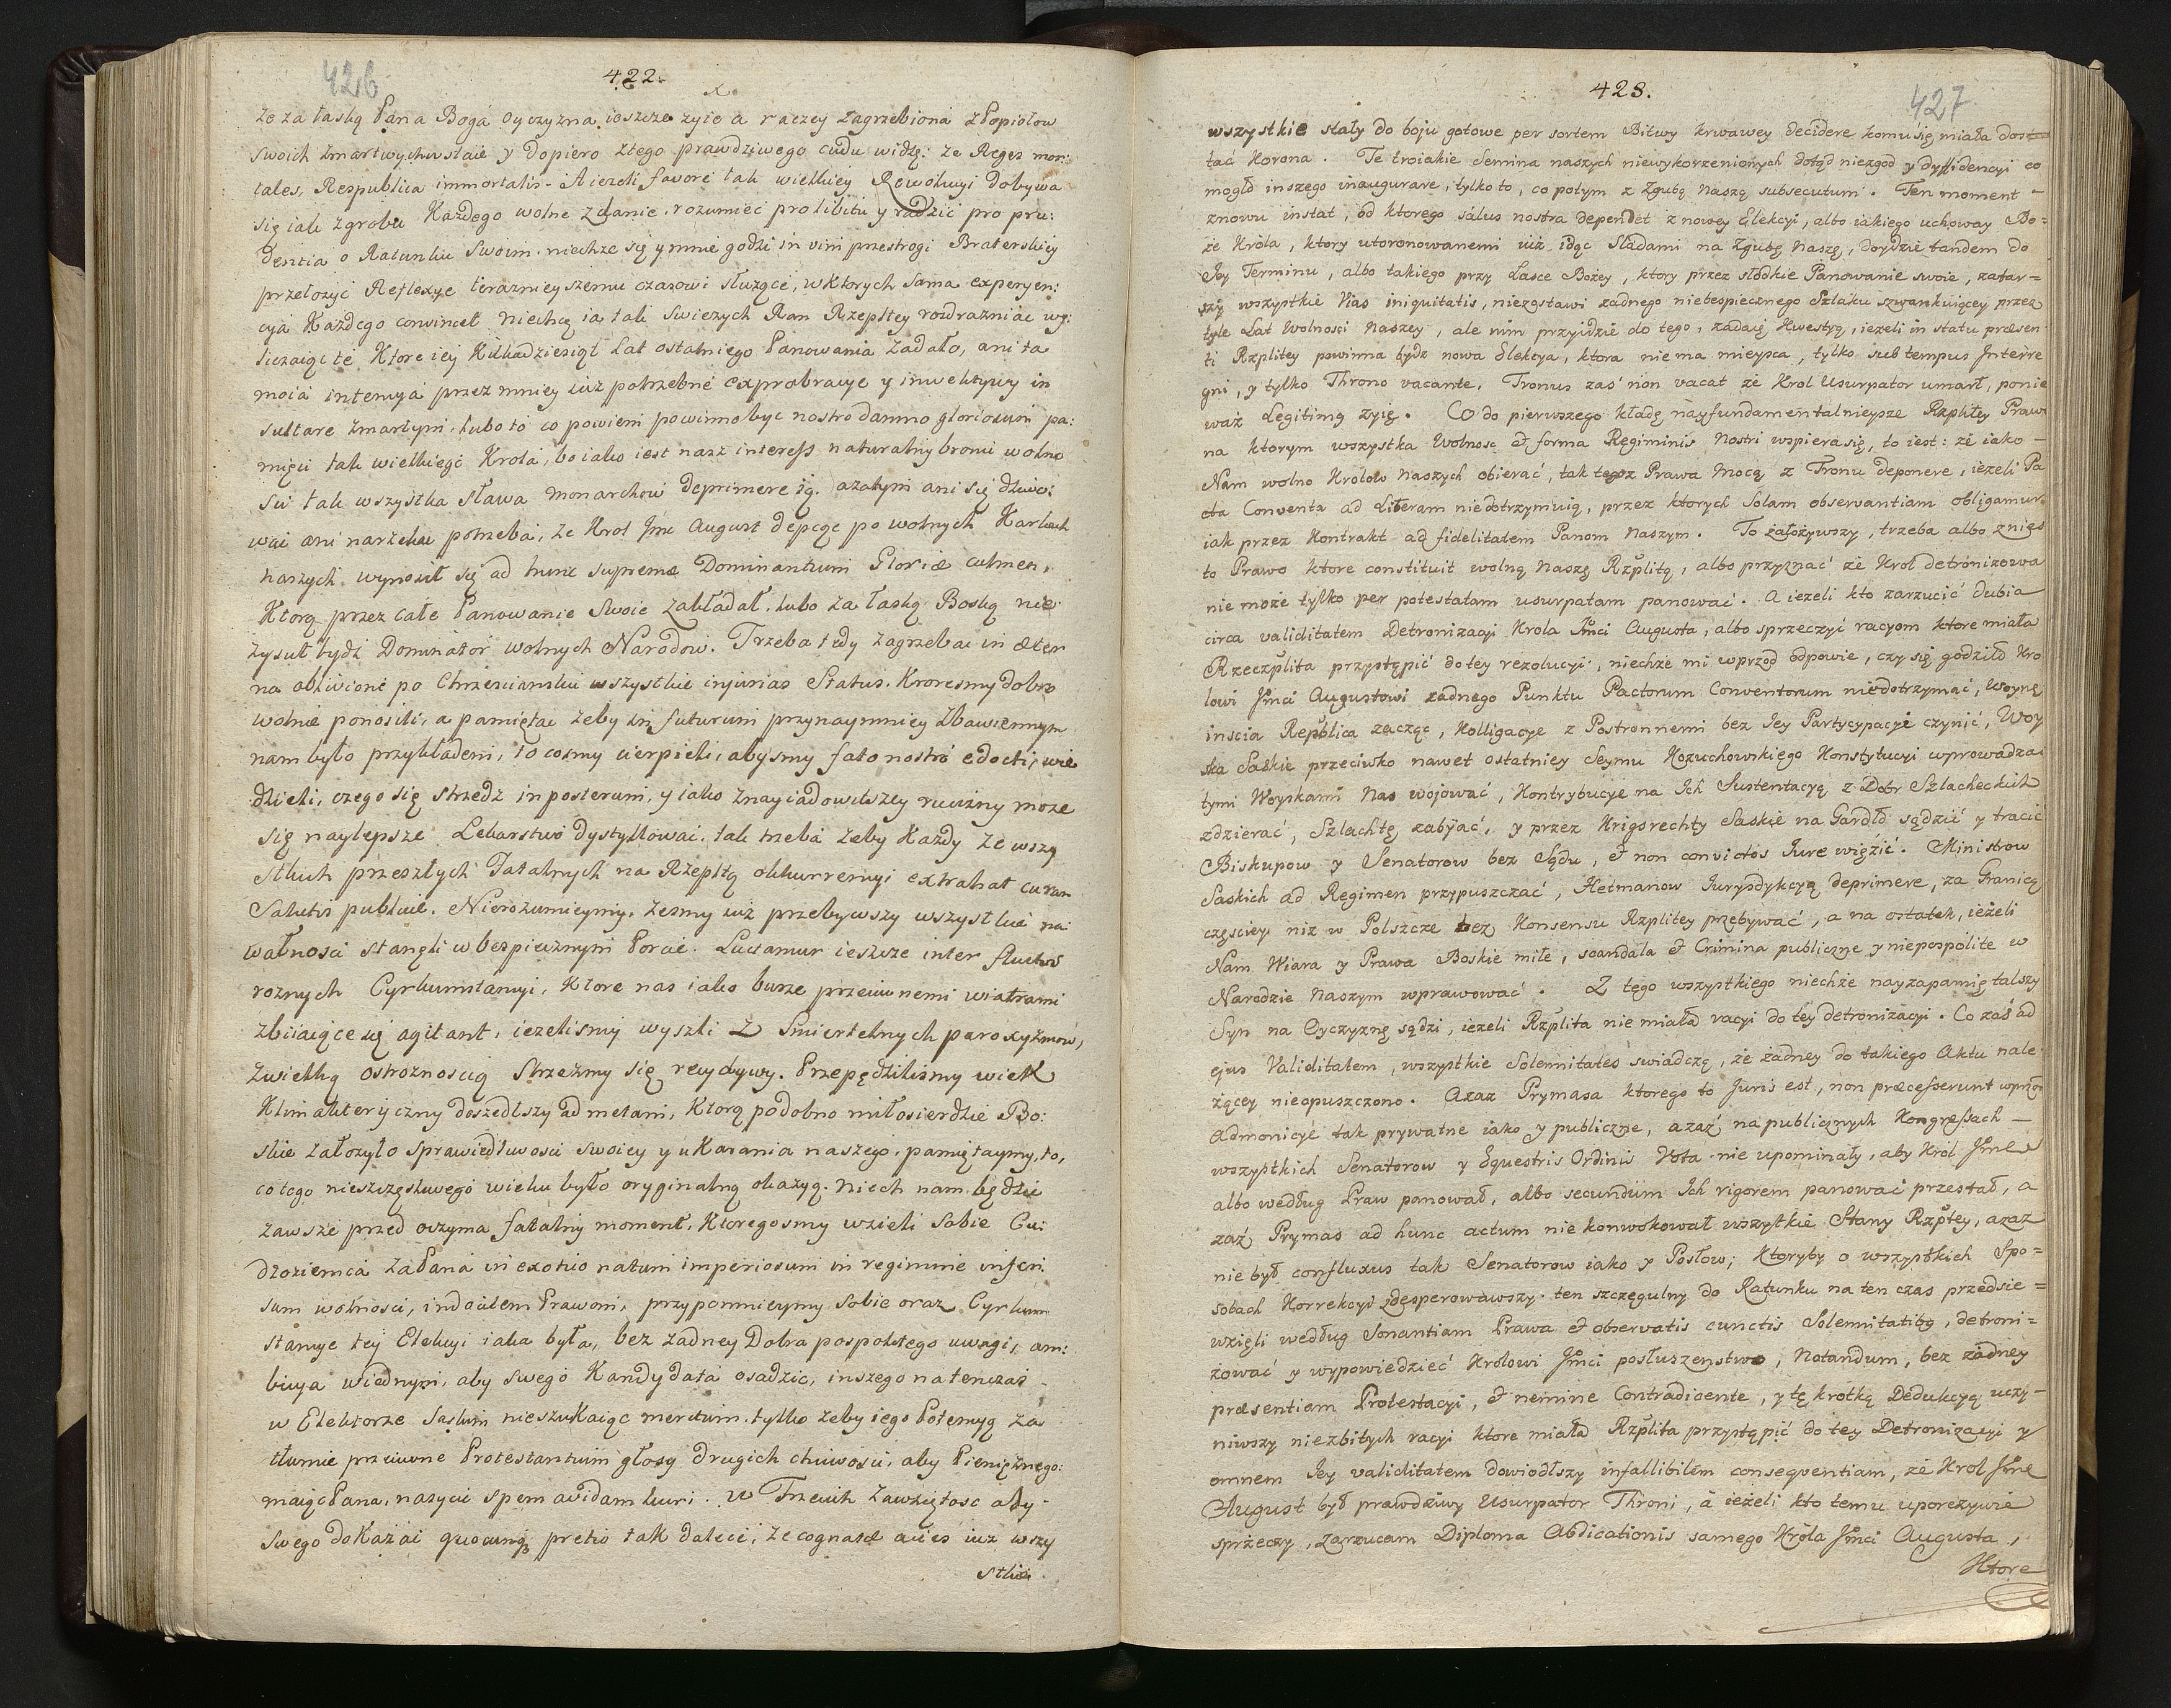 426
422.
że za łaską Pana Boga oyczyzna ieszcze zyie a raczey zagrzebiona z Popiołow
swoich zmartwychwstaie y dopiero ztego prawdziwego cudu widzę: że Reges mor:
tales, Respublica immortalis. A ieżeli favore tak wielkiey Rewolucyi dobywa
się iak zgrobu Każdego wolne zdanie, rozumieć pro libitu y radzić pro pru:
dentia o Ratunku Swoim. niechże się y mnie godzi in vim przestrogi Braterskiey
przełożyć Reflexye teraznieyszemu czasowi służące, wktorych sama experyen:
cya Każdego convincet niechcę ia tak swieżych Ran Rzepltey rozdrazniac wy:
liczaiąc te Ktore iey Kilkadziesiąt Lat ostatniego Panowania zadało, ani ta
moia intencya przez mniey iuż potrzebne exprobracye y inwektywy in
sultare zmarłym, lubo to co powiem powinno być nostro damno gloriosum pa:
mięci tak wielkiego Krola, bo iako iest nasz interess naturalny bronić wolno
ści tak wszystka sława monarchow deprimere ią. azatym ani się dziwo:
wać ani narzekac potrzeba, że Krol Jmc August depcąc po wolnych Karkach
naszych wynosił się ad hunc supremæ Dominantium Gloriæ culmen,
Ktorą przez całe Panowanie Swoie zakładał, lubo za łaską Boską nie
zyskuł bydź Dominator wolnych Narodow. Trzeba tedy zagrzebac in æter
na oblivione po Chrzesciansku wszystkie injurias Status. Ktoresmy dobro
wolnie ponosili, a pamiętac żeby in futurum przynaymniey zbawiennym
nam było przykładem, to cosmy cierpieli, abysmy fato nostro edocti, wie
dzieli, czego się strzedz in posterum, y iako znayiadowitszey ruciżny moze
się naylepsze Lekarstwo dystyllować, tak trzeba żeby Każdy ze wszy
stkich przeszłych Fatalnych na Rzepltą okkurrencyi extrahat curam
Salutis publicæ. Nierozumieymy, żesmy iuż przebywszy wszystkie na
wałnosci stanęli w bespiecznym Porcie. Luctamur ieszcze inter fluctus
roznych Cyrkumstancyi, Ktore nas iako burze przeciwnemi wiatrami
zbiiaiące się agitant, ieżelismy wyszli z Smiertelnych paroxyzmow,
zwielką ostroznoscią Strzezmy się recydywy. Przepędzilismy wiek
Klimakteryczny doszedłszy ad metam, Ktorą podobno miłosierdzie Bo:
skie założyło sprawiedliwosci swoiey y ukarania naszego, pamiętaymy, to,
co tego nieszczęsliwego wieku było oryginalną okazyą. niech nam będzie
zawsze przed oczyma fatalny moment, Ktoregosmy wzieli sobie Cu:
dzoziemca zaPana in exotico natum imperiosum in regimine infen
sum wolnosci, indocilem Prawom, przypomnieymy sobie oraz Cyrkum
stancye tey Elekcyi iaka była, bez zadney Dobra pospolitego uwagi, am:
bicya wiednym, aby swego Kandydata osadzic, inszego natenczas
w Elektorze Saskim nieszukaiąc meritum, tylko żeby iego Potencyą za
tłumic przeciwne Protestantium głosy drugich chciwosci, aby Pieniężnego:
maiąc Pana, nasycic spem avidam lucri. w Trzecich zawziętosc aby
swego dokazać quocunq pretio tak dalece, że cognatæ acies iuż wszy
stkie
423.
427
wszystkie stały do boju gotowe per sortem Bitwy krwawey decidere komu się miała dos
tać Korona. Te troiakie Semina naszych niewykorzenionych dotąd niezgod y dyffidencyi co
mogło inszego inaugurare, tylko to, co potym z Zgubą Naszą subsecutum. Ten moment
znowu instat, od ktorego salus nostra dependet z nowey Elekcyi, albo iakiego uchoway Bo=
że Króla, ktory utoronowanemi iuż idąc Sladami na Zgubę Naszę, doydzie tandem do
Jey Terminu, albo takiego przy Łasce Bożey, ktory przez słodkie Panowanie swoie, zatar=
szy wszystkie Vias iniquitatis, niezostawi żadnego niebespiecznego Szlaku szwankuiącey przez
tyle Lat Wolnosci Naszey, ale nim przyidzie do tego, zadaię Kwestyą, ieżeli in statu præsen
ti Rzplitey powinna bydz nowa Elekcya, ktora nie ma mieysca, tylko sub tempus Interre
gni, y tylko Throno vacante. Tronus zas non vacat że Krol Usurpator umarł, ponie
waż Legitimg żyię. Co do pierwszego kładę nayfundamentalnieysze Rzplitey Prawo
na ktorym wszystka Wolnosc & forma Regiminis Nostri wspiera się, to iest: że iako
Nam wolno Krolow Naszych obierać, tak tegoz Prawa mocą z Tronu deponere, ieżeli Pa
cta Conventa ad Literam niedotrzymuią, przez ktorych Solam observantiam obligamur
iak przez Kontrakt ad fidelitatem Panom Naszym. To założywszy, trzeba albo znies
to Prawo ktore constituit wolną Naszę Rzplitą, albo przyznać że Krol detronizowa
nie może tylko per potestatam usurpatam panować. A ieżeli kto zarzucić dubia
circa validitatem Detronizacyi Krola Jmci Augusta, albo sprzeczyć racyom ktore miała
Rzeczplita przystąpić do tey rezolucyi, niechże mi wprzod odpowie, czy się godziło Kro
lowi Jmci Augustowi żadnego Punktu Pactorum Conventorum niedotrzymać, Woynę
inscia Republica zacząc, Kolligacye z Postronnemi bez Jey Partycypacyi czynić, Woy
ska Saskie przeciwko nawet ostatniey Seymu Kozuchowskiego Konstytucyi wprowadza
tymi Woyskami Nas wojować, Kontrybucye na Ich Sustentacyą z Dobr Szlacheckich
zdzierać, Szlachtę zabijać, y przez Krigsrechty Saskie na Gardło sądzić y tracić
Biskupow y Senatorow bez Sądu, & non convictos Iure więzić. Ministrow
Saskich ad Regimen przypuszczać, Hetmanow Iurysdykcyą deprimere, za Granicą
częsciey niż w Polszcze bez Konsensu Rzplitey przebywać, a na ostatek, ieżeli
Nam Wiara y Prawa Boskie miłe, scandala & Crimina publiczne y niepospolite w
Narodzie Naszym wprawować. Z tego wszystkiego niechże nayzapamiętalszy
Syn na Oyczyznę sądzi, ieżeli Rzplita nie miała racyi do tey detronizacyi. Co zaś ad
ejus Validitatem, wszystkie Solemnitates swiadczą, że żadney do takiego Aktu nale
żącey nieopuszczono. Azaz Prymasa ktorego to Juris est, non præcesserunt wprzod
Admonicye tak prywatne iako y publiczne, azaż na publicznych Kongressach
wszystkich Senatorow y Equestris Ordinis Vota nie upominały, aby Król Jmc
albo według Praw panował, albo secundum Ich rigorem panować przestał, a
zaż Prymas ad hunc actum nie konwokował wszystkie Stany Rzptey, azaz
nie był confluxus tak Senatorow iako y Posłow, Ktoryby o wszystkich Spo=
sobach Korrekcyi zdesperowawszy, ten szczegulny do Ratunku na ten czas przedsie=
wzięli według Sonantiam Prawa & observatis cunctis Solemnitatibg, detroni=
zować y wypowiedzieć Krolowi Jmci posłuszenstwo, Notandum, bez żadney
præsentiam Protestacyi, & nemine Contradicente, y tę krotką Dedukcyą uczy=
niwszy niezbitych racyi ktore miała Rzplita przystąpić do tey Detronizacyi y
omnem Jey validitatem dowiodłszy infallibilem conseqventiam, że Krol Jmc
August był prawdziwy Usurpator Throni, a ieżeli kto temu uporczywie
sprzeczy, zarzucam Diploma Abdicationis samego Króla Jmci Augusta,
Ktore